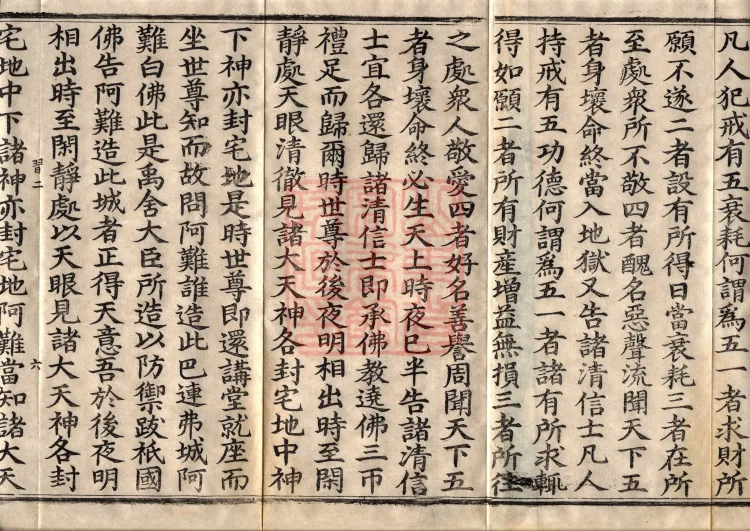 凡人犯戒有五衰耗何謂為五一者求財所
願不遂二者設有所得日當衰耗三者在所
至處衆所不敬四者醜名惡聲流聞天下五
者身壞命終當入地獄又告諸清信士凡人
持戒有五功德何謂為五一者諸有所求輒
得如願二者所有財産增益無損三者所往
之處衆人敬愛四者好名善譽周聞天下五
者身壞命終必生天上時夜已半告諸清信
士宜各還歸諸清信士即承佛教遶佛三帀
禮足而歸爾時世尊於後夜明相出時至閑
靜處天眼清徹見諸大天神各封宅地中神
下神亦封宅地是時世尊即還講堂就座而
坐世尊知而故問阿難誰造此巴連弗城阿
難白佛此是禹舍大臣所造以防禦跋祇國
佛告阿難造此城者正得天意吾於後夜明
相出時至閑靜處以天眼見諸大天神各封
習二
六
宅地中下諸神亦封宅地阿難當知諸大天